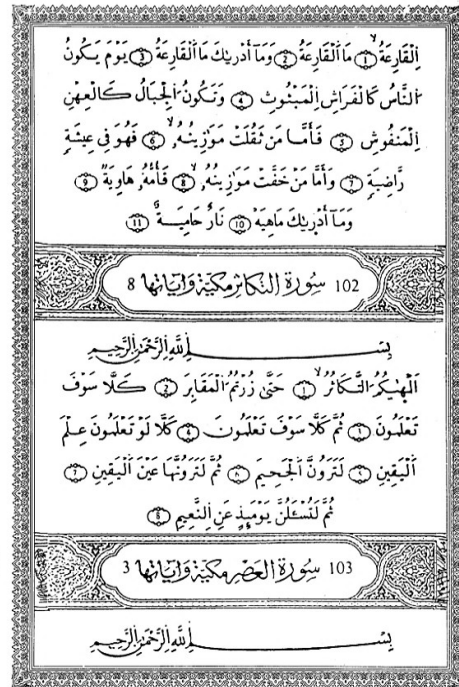 اِ۬لْقَارِعَةُ ١ مَا اَ۬لْقَارِعَةُ ٢ وَمَآ أَدْر۪يٰكَ مَا اَ۬لْقَارِعَةُ ٣ يَوْمَ يَكُونُ
اُ۬لنَّاسُ كَالْفَرَاشِ اِ۬لْمَبْثُوثِ ٤ وَتَكُونُ اُ۬لْجِبَالُ كَالْعِهْنِ
اِ۬لْمَنفُوشِ ٥ فَأَمَّا مَن ثَقُلَتْ مَوَٰزِينُهُۥ ٦ فَهُوَ فِي عِيشَةٍ
رَّاضِيَةٍ ٧ وَأَمَّا مَنْ خَفَّتْ مَوَٰزِينُهُۥ ٨ فَأُمُّهُۥ هَاوِيَةٌ ٩
وَمَآ أَدْر۪يٰكَ مَاهِيَهْ ١٠ نَارٌ حَامِيَةٌ ١١
102 سُورَة التكاثر مكية وآياتها 8
بِسْمِ اِ۬للَّهِ اِ۬لرَّحْمَٰنِ اِ۬لرَّحِيمِ
أَلْه۪يٰكُمُ اُ۬لتَّكَاثُرُ ١ حَتَّىٰ زُرْتُمُ اُ۬لْمَقَابِرَ ٢ كَلَّا سَوْفَ
تَعْلَمُونَ ٣ ثُمَّ كَلَّا سَوْفَ تَعْلَمُونَ ٤ كَلَّا لَوْ تَعْلَمُونَ عِلْمَ
اَ۬لْيَقِينِ ٥ لَتَرَوُنَّ اَ۬لْجَحِيمَ ٦ ثُمَّ لَتَرَوُنَّهَا عَيْنَ اَ۬لْيَقِينِ ٧
ثُمَّ لَتُسْـَٔلُنَّ يَوْمَئِذٍ عَنِ اِ۬لنَّعِيمِ ٨
103 سُورَة العصر مكية وآياتها 3
بِسْمِ اِ۬للَّهِ اِ۬لرَّحْمَٰنِ اِ۬لرَّحِيمِ